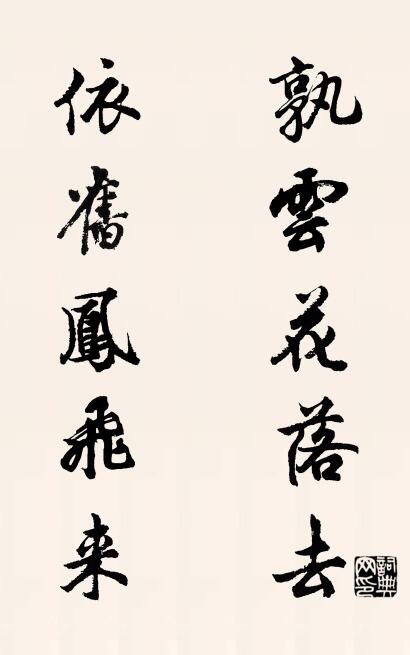 孰雲花落去
依舊鳳飛来
詞典網印